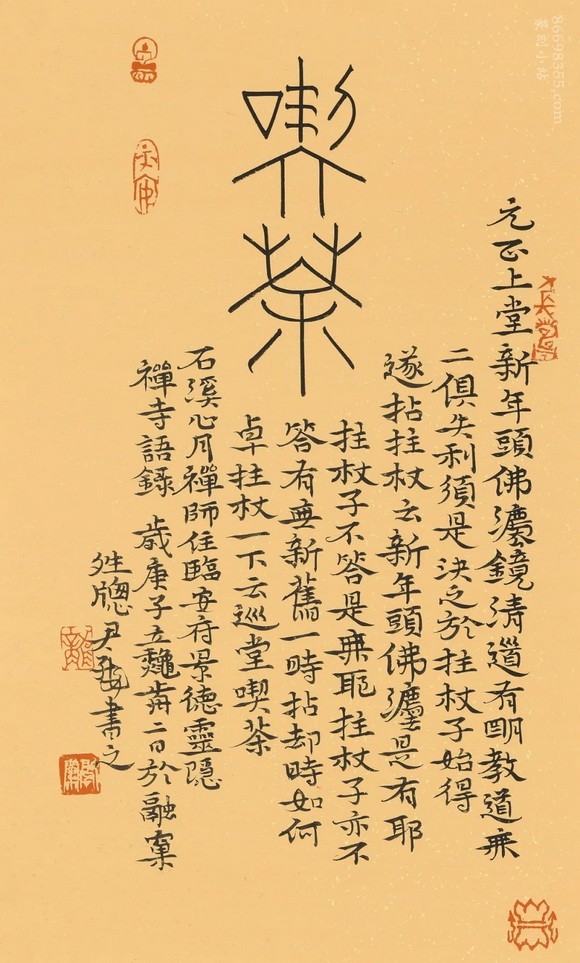 喫茶
元正上堂新年頭佛灋鏡清道有明教道無
二俱失利須是決之於拄杖子始得
遂拈拄杖云新年頭佛灋是有耶
拄杖子不答是無耶拄杖子亦不
答有無新舊一時拈却時如何
卓拄杖一下云巡堂喫茶
石溪心月禪師住臨安府景德靈隱
禪寺語録 歲庚子立龝歬二日於融窠
甡牕尹書之
86698555.com
篆刻小站